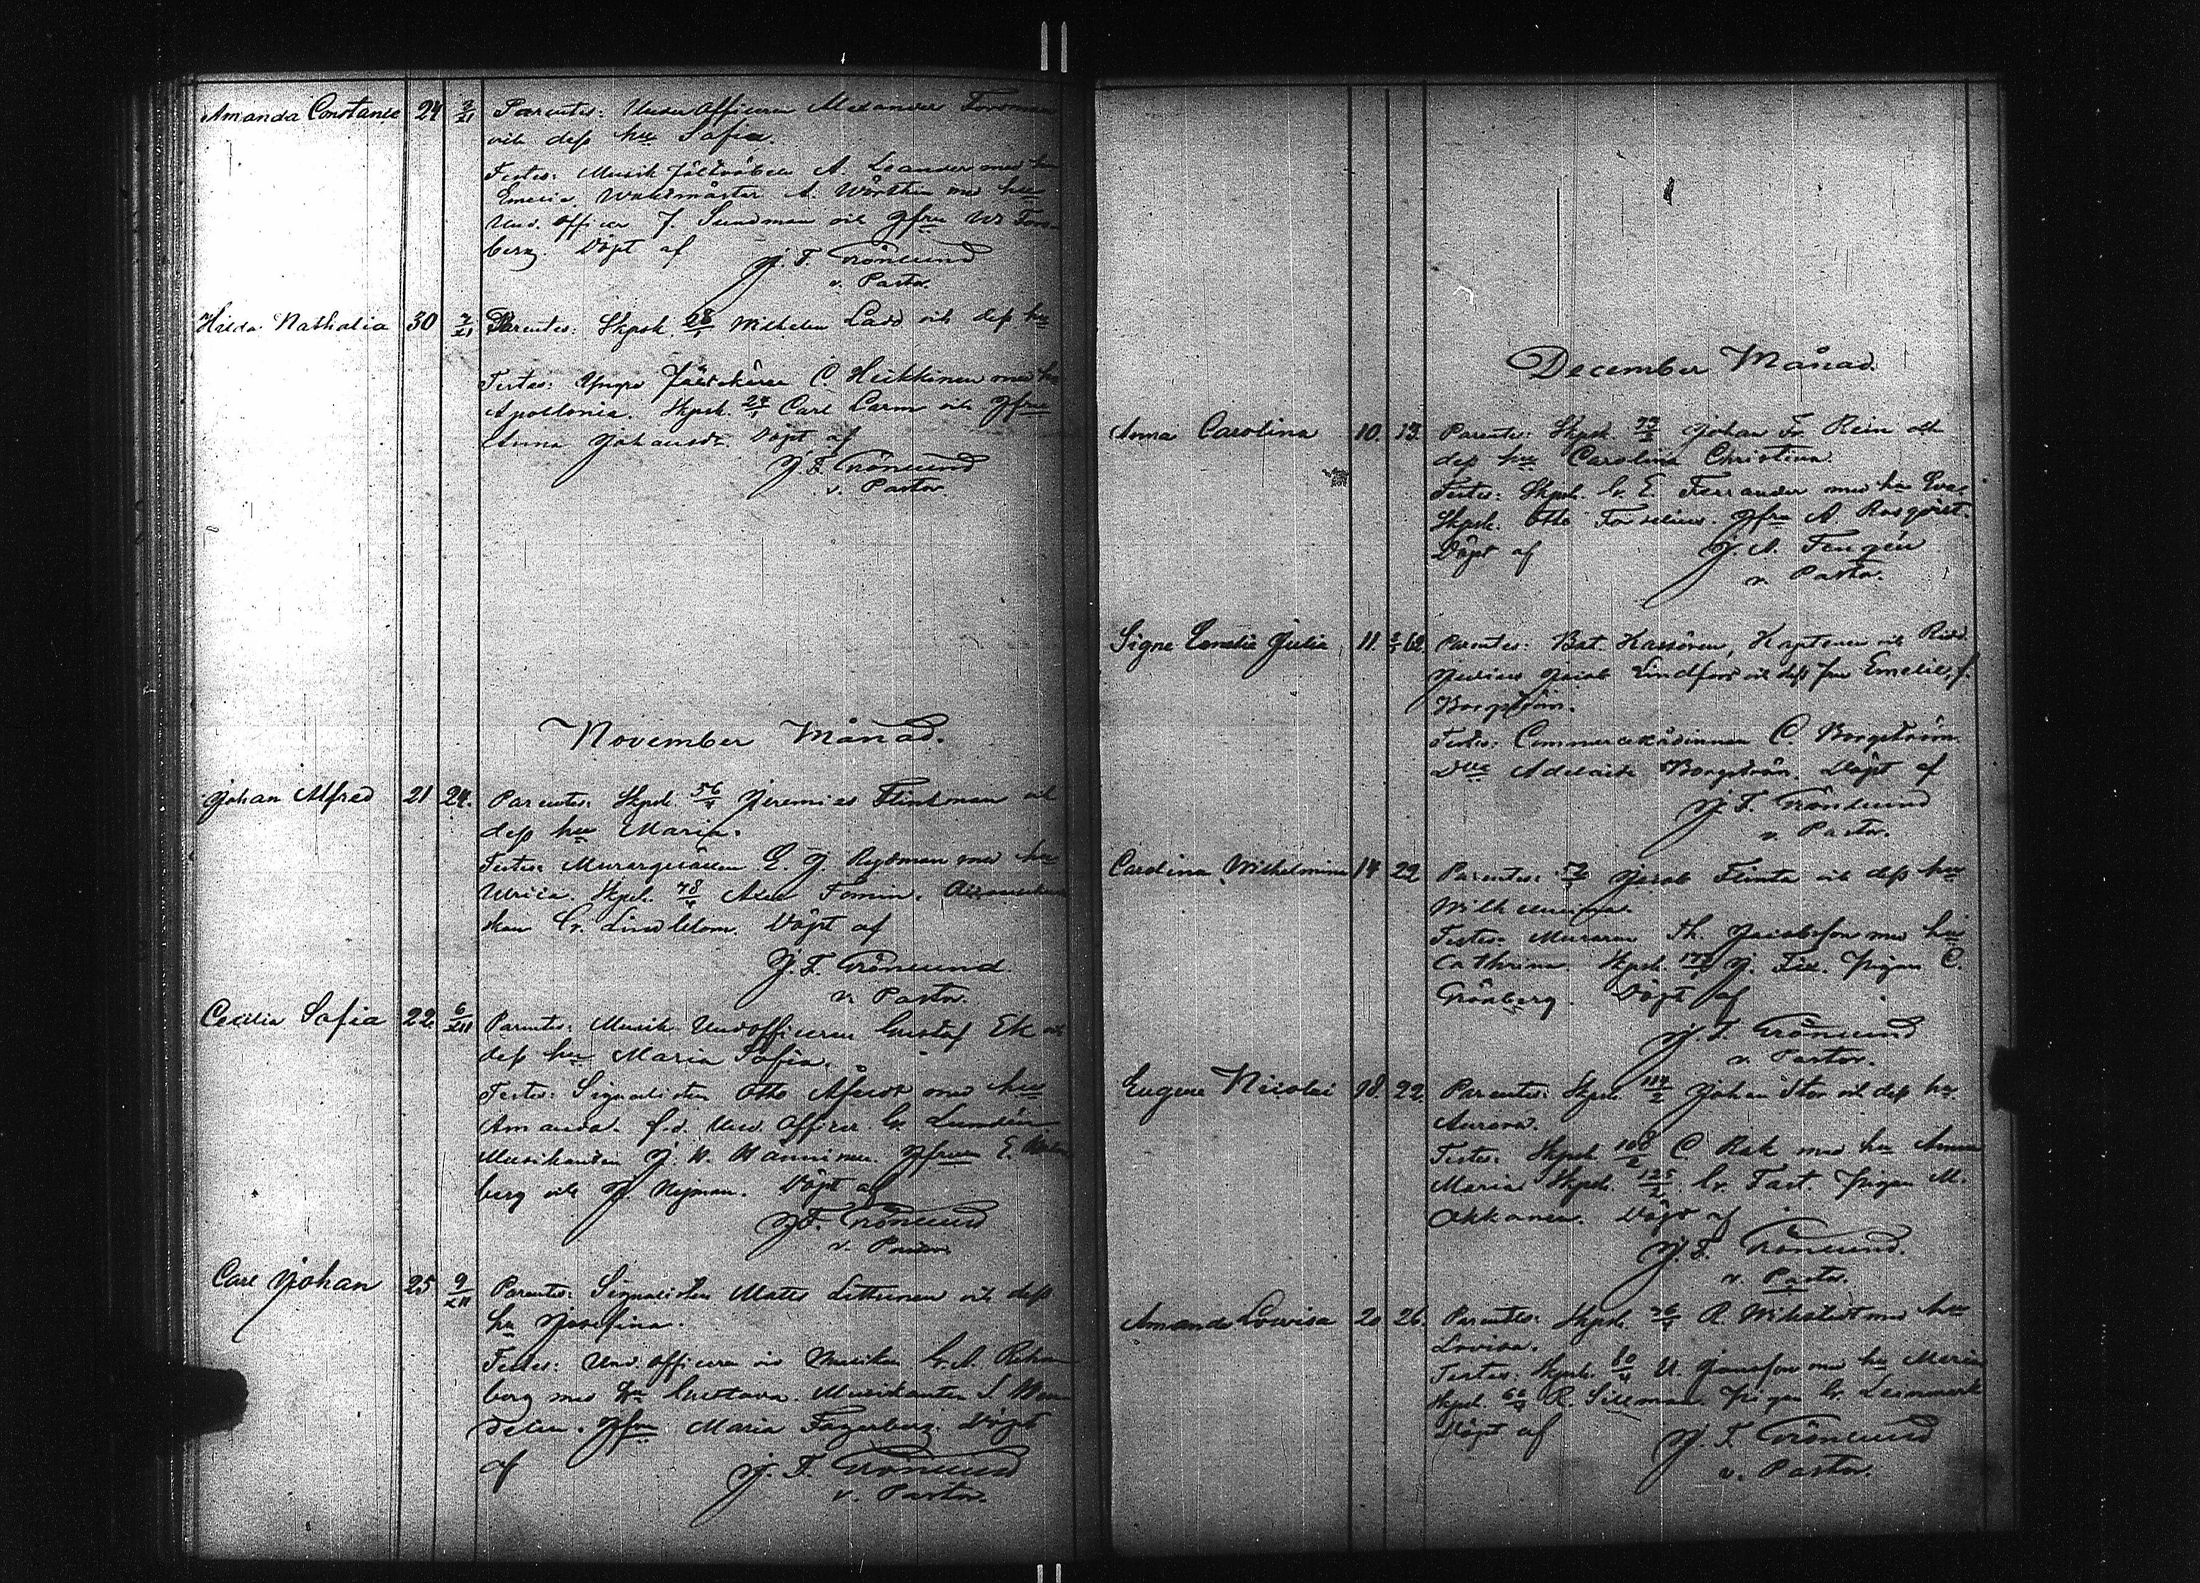 Amanda Constance 24 2/XI Parentes: Underofficeren Alexander Forsman
och dess hu Sofia.
Testes: Musik Fältväbeln A. Leander med hu
Emelie. Waktmäster A. Wörthin med hu
Und. officer J. Sundman och Jfru W. Fors-
berg. Döpt af J. F. Grönlund
v. Pastor.
Hilda Nathalia 30 2/XI Parentes: Skpsk. Wilhelm Ladd och dess hu
Testes: Yngre C. Hukkinen med hu
Apollonia. Skpsk. 24 Carl Larm och Jfru
Anna Johansdr Döpt af
J. F. Grönlund
v. Pastor.
November Månad.
Johan Alfred 21 24. Parentes: Skpsk. 56 Jeremias Flinkman och
dess hu Maria.
Testes: Murargesällen E. J. Rydman med hu
Ulrica. Skpsk. 48 Alex Fomin.
Gr. Lindblom. Döpt af
J. F. Grönlund
v. Pastor.
Cecilia Sofia 22 6/XII Parentes: Musik Undofficeren Gustaf Ek och
dess hu Maria Sofia.
Testes: Signalisten Otto med hu
Amanda. f.d. Und. Officer G. Lundén
Musikanten J. W. Wänninen. Jfrun E.
berg och J. Nyman. Döpt af
J. F. Grönlund
v. Pastor
Carl Johan 25 9/XII Parentes: Signalisten Mats Littunen och dess
hu Josefina.
Testes: Und. officeren vid Musiken G. A. Rehn-
berg med hu Gustava. Musikanten S.
Jfru Maria Fagerberg. Döpt
af J. F. Grönlund
v. Pastor.
December Månad.
Anna Carolina 10. 13. Parentes: Skpsk. Johan Fr. Rein och
dess hu Carolina Christina.
Testes: Skpsk. G. E. Ferrander med hu Eva
Skpsk. Otto Forselius. Jfru A. Rosqvist.
Döpt af J. A. Tengén
v. Pastor.
Signe Emelie Julia 11. 62 Parentes: Bat. Kassören, Kaptenen och Ridd.
Julius Jacob Lindfors och dess fru Emelie, f.
Borgström.
Testes: Commerserådinnan C. Borgström
Dlle Adelaide Borgström. Döpt af
J. F. Grönlund
v. Pastor.
Carolina Wilhelmina 14 22 Parentes: Jacob Flinta och dess hu
Wilhelmina.
Testes: Muraren Th. Jacobsson med hu
Cathrina. Skpsk. J. Fil. Pigan C.
Grönberg. Döpt af
J. F. Grönlund
v. Pastor.
Eugene Nicolai 18. 22. Parentes: Skpsk. Johan Stor och dess hu
Aurora.
Testes: Skpsk. 108/2 C. Rak med hu Anna
Maria Skpsk. 125/2 G. Fast. Pigan M.
Akkanen. Döpt af
J. F. Grönlund.
v. Pastor.
Amanda Lovisa 20 26 Parentes: Skpsk. R. Wikstedt med hu
Lovisa.
Testes: Skpsk. 80 U. Jonasson med hu Maria
Skpsk. R. Sillman. Pigan G.
Döpt af J. F. Grönlund
v. Pastor.